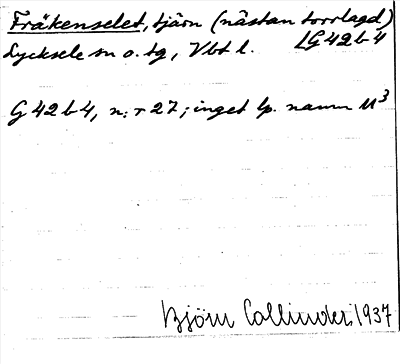 Fräkenselet, tjärn (nästan torrlagd)
Lycksele sn o. tg, Vbt l. LG42b4
G42b4, n: r 27; inget lp. namn M³
Björn Collinder 1937